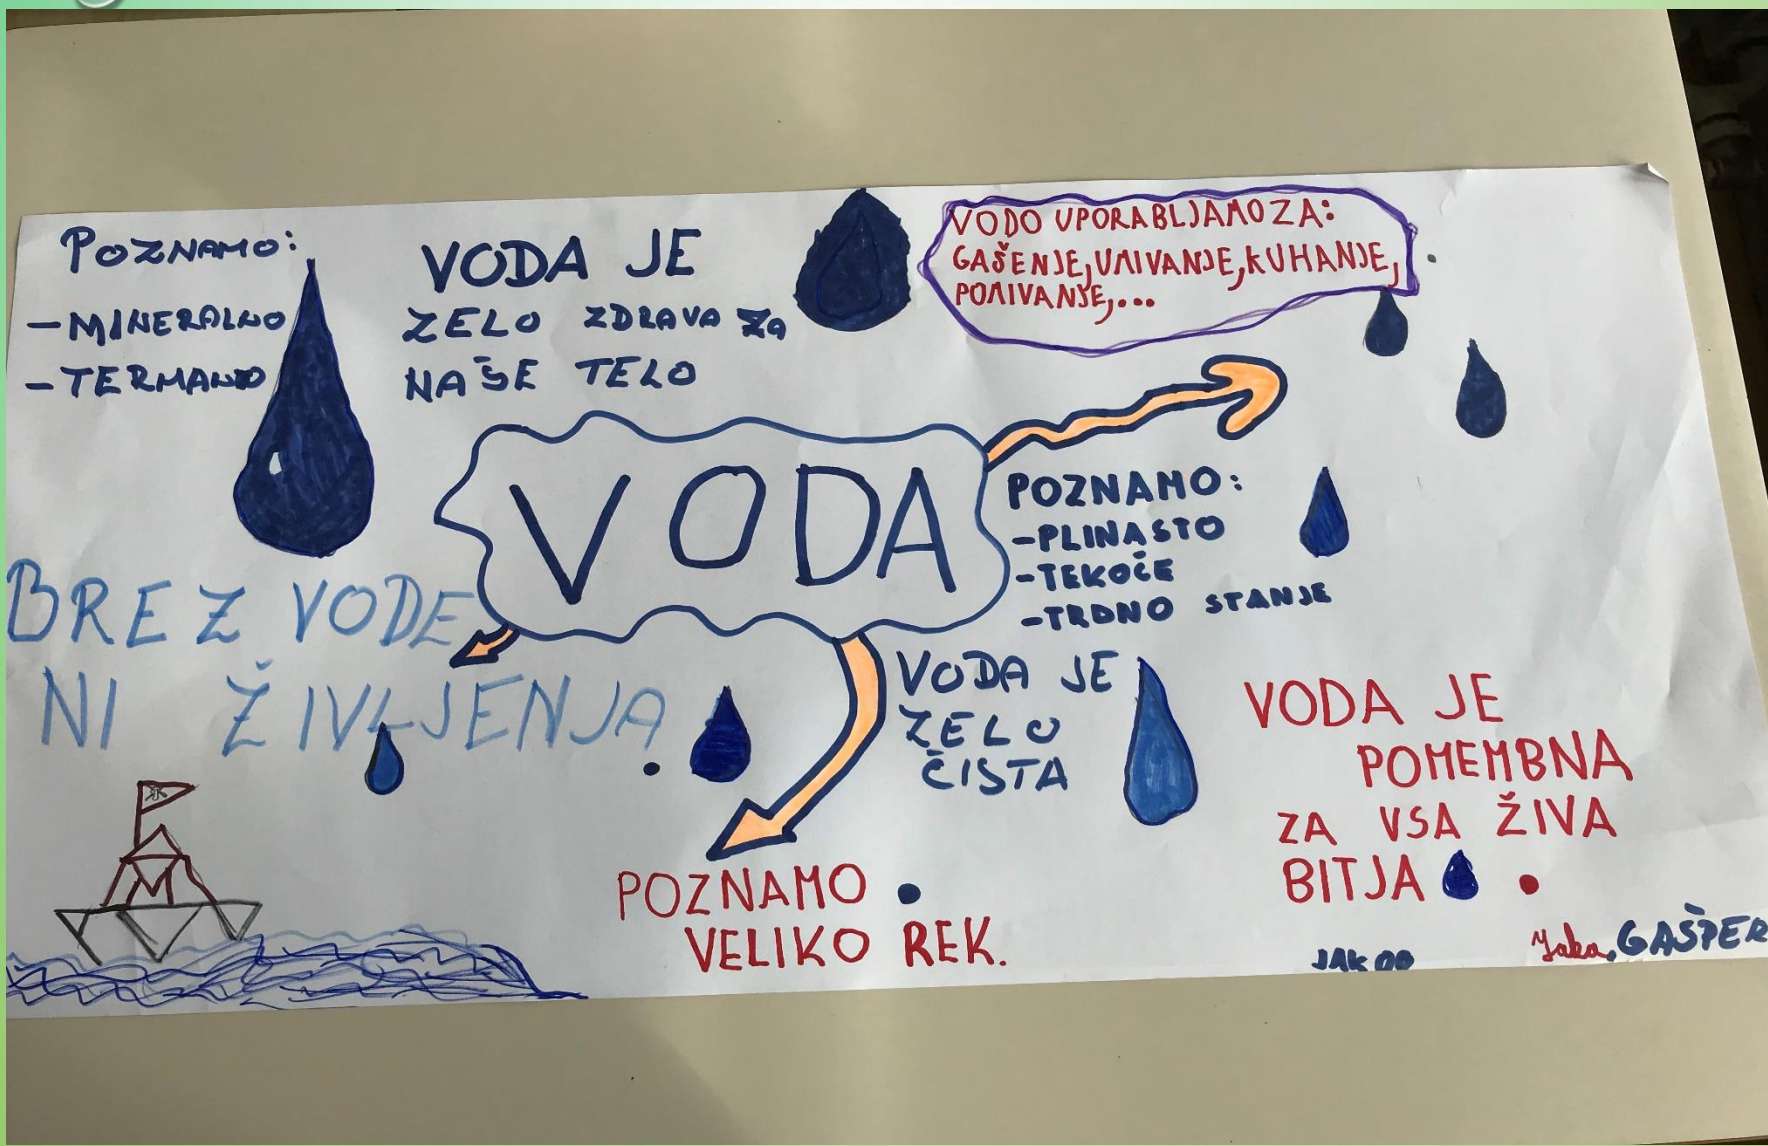 POZNAMO:
-MINERALNO
-TERMALNO
VODA JE
ZELO ZDRAVA ZA
NAŠE TELO
VODO UPORABLJAMO ZA:
GAŠENJE, UMIVANJE, KUHANJE,
POMIVANJE,...
VODA
POZNAMO:
-PLINASTO
-TEKOČE
-TRDNO STANJE
BREZ VODE
NI ŽIVLJENJA
VODA JE
ZELO
ČISTA
VODA JE
POMEMBNA
ZA VSA ŽIVA
BITJA
POZNAMO
VELIKO REK.
M
Jaka, GAŠPER